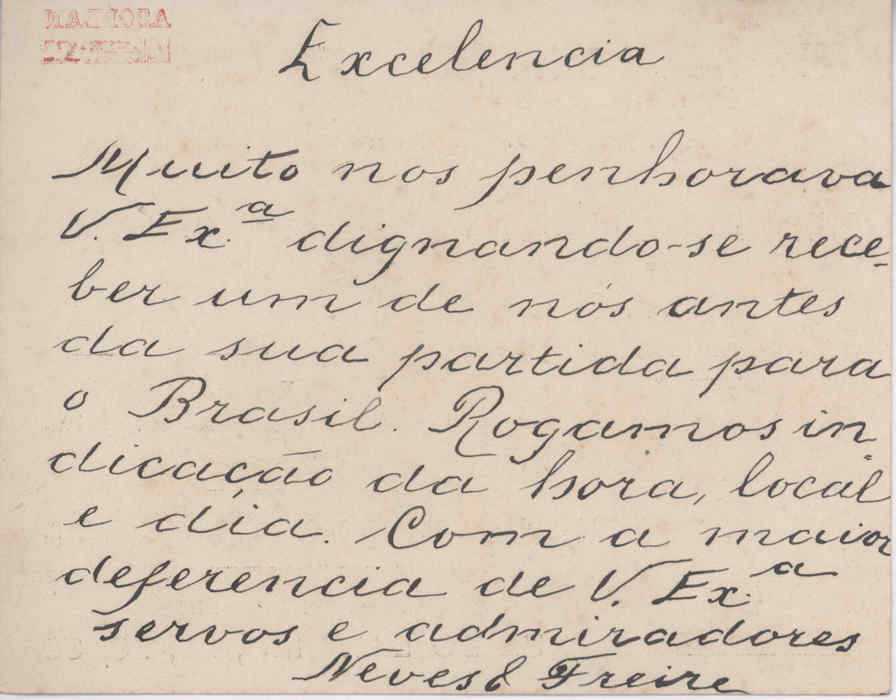 Excelencia
Muito nos penhorava
V. Ex.ª dignando-se rece-
ber um de nós antes
da sua partida para
o Brasil. Rogamos in
dicação da hora, local
e dia. Com a maior
deferencia de V. Ex.ª
servos e admiradores
Neves & Freire